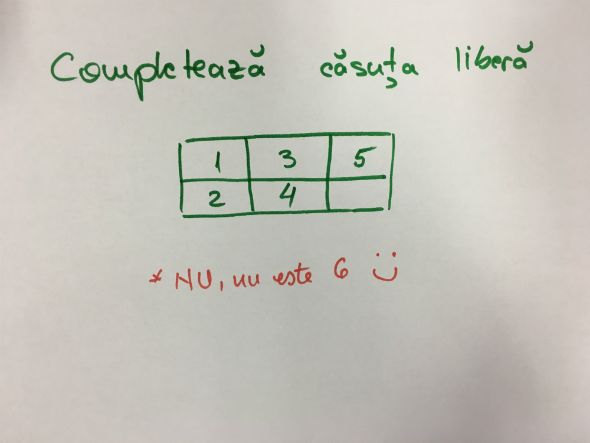 Completează căsuța liberă
1 3 5
2 4
* NU, nu este 6 :)